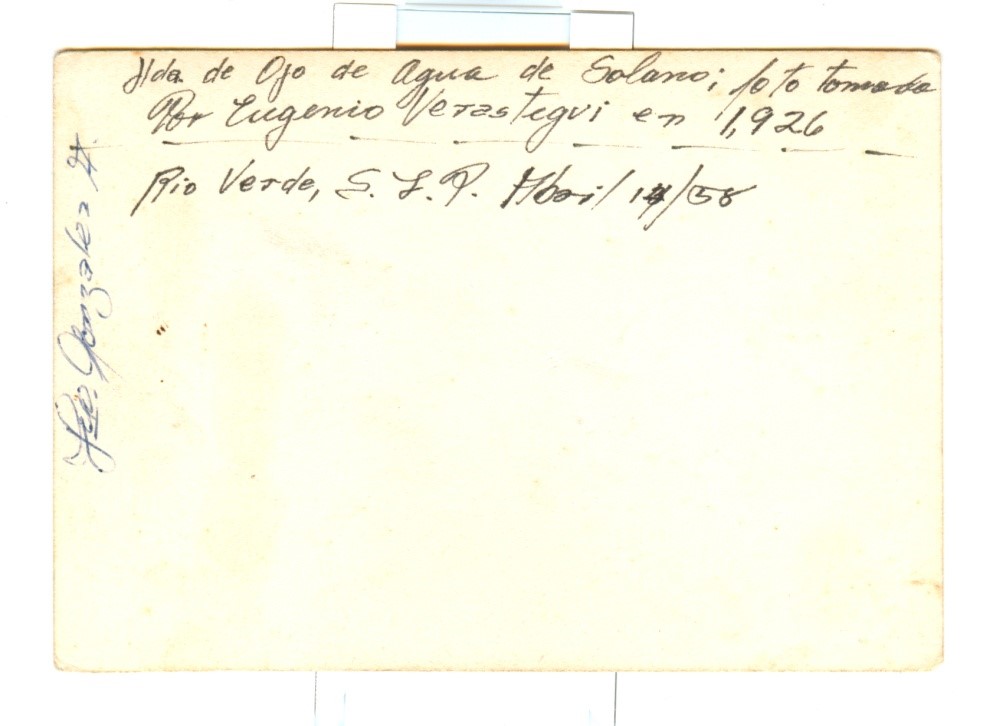 Hda. de Ojo de Agua de Solano; foto tomada
Por Eugenio Verastegui en 1,926
Rio Verde, S. L. P. Abril 14/58
Gonzalez